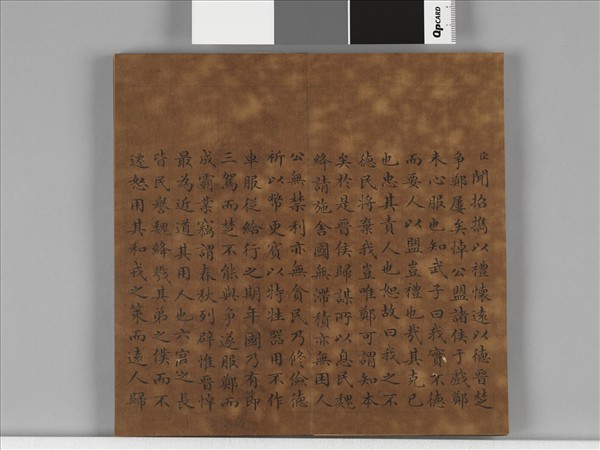 臣聞招攜以禮懷遠以德晉楚
爭鄭屢矣悼公盟諸侯于戲鄭
未心服也知武子曰我實不德
而要人以盟豈禮也哉其克己
也忠其責人也恕故曰我之不
德民將棄我豈唯鄭可謂知本
矣於是晉侯歸謀所以息民魏
絳請施舍國無滯積亦無困人
公無禁利亦無貪民乃修儉德
祈以幣更賓以特牲器用不作
車服從給行之期年國乃有節
三駕而楚不能與爭遂服鄭而
成霸業竊謂春秋列辟惟晉悼
最為近道其用人也六官之長
皆民譽魏絳戮其弟之僕而不
逞怒用其和戎之策而遠人歸
QPCARD